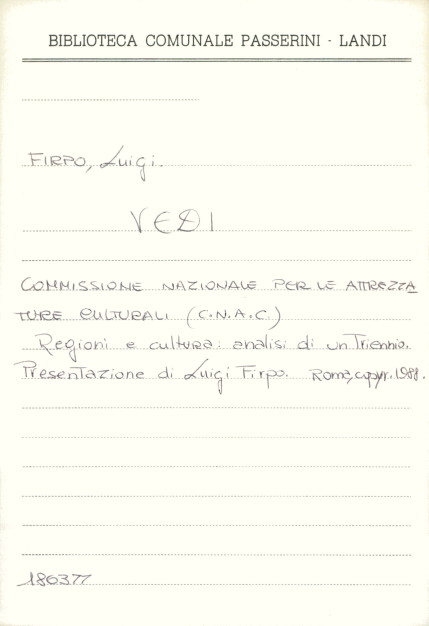 BIBLIOTECA COMUNALE PASSERINI - LANDI
FIRPO, Luigi.
VEDI
COMMISSIONE NAZIONALE PER LE ATTREZZA
TURE CULTURALI (C.N.A.C.)
Regioni e cultura: analisi di un Triennio.
Presentazione di Luigi Firpo. Roma, copyr. 1988.
186377